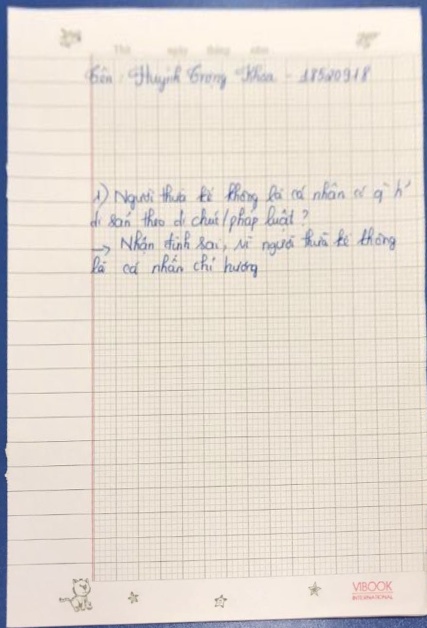 Thứ ngày tháng năm
Tên : Huỳnh Trọng Khoa - 18520918
1) Người thừa kế không là cá nhân có q` h'
di sản theo di chúc/pháp luật ?
→ Nhận định sai, vì người thừa kế không
là cá nhân chỉ hưởng
VIBOOK
INTERNATIONAL